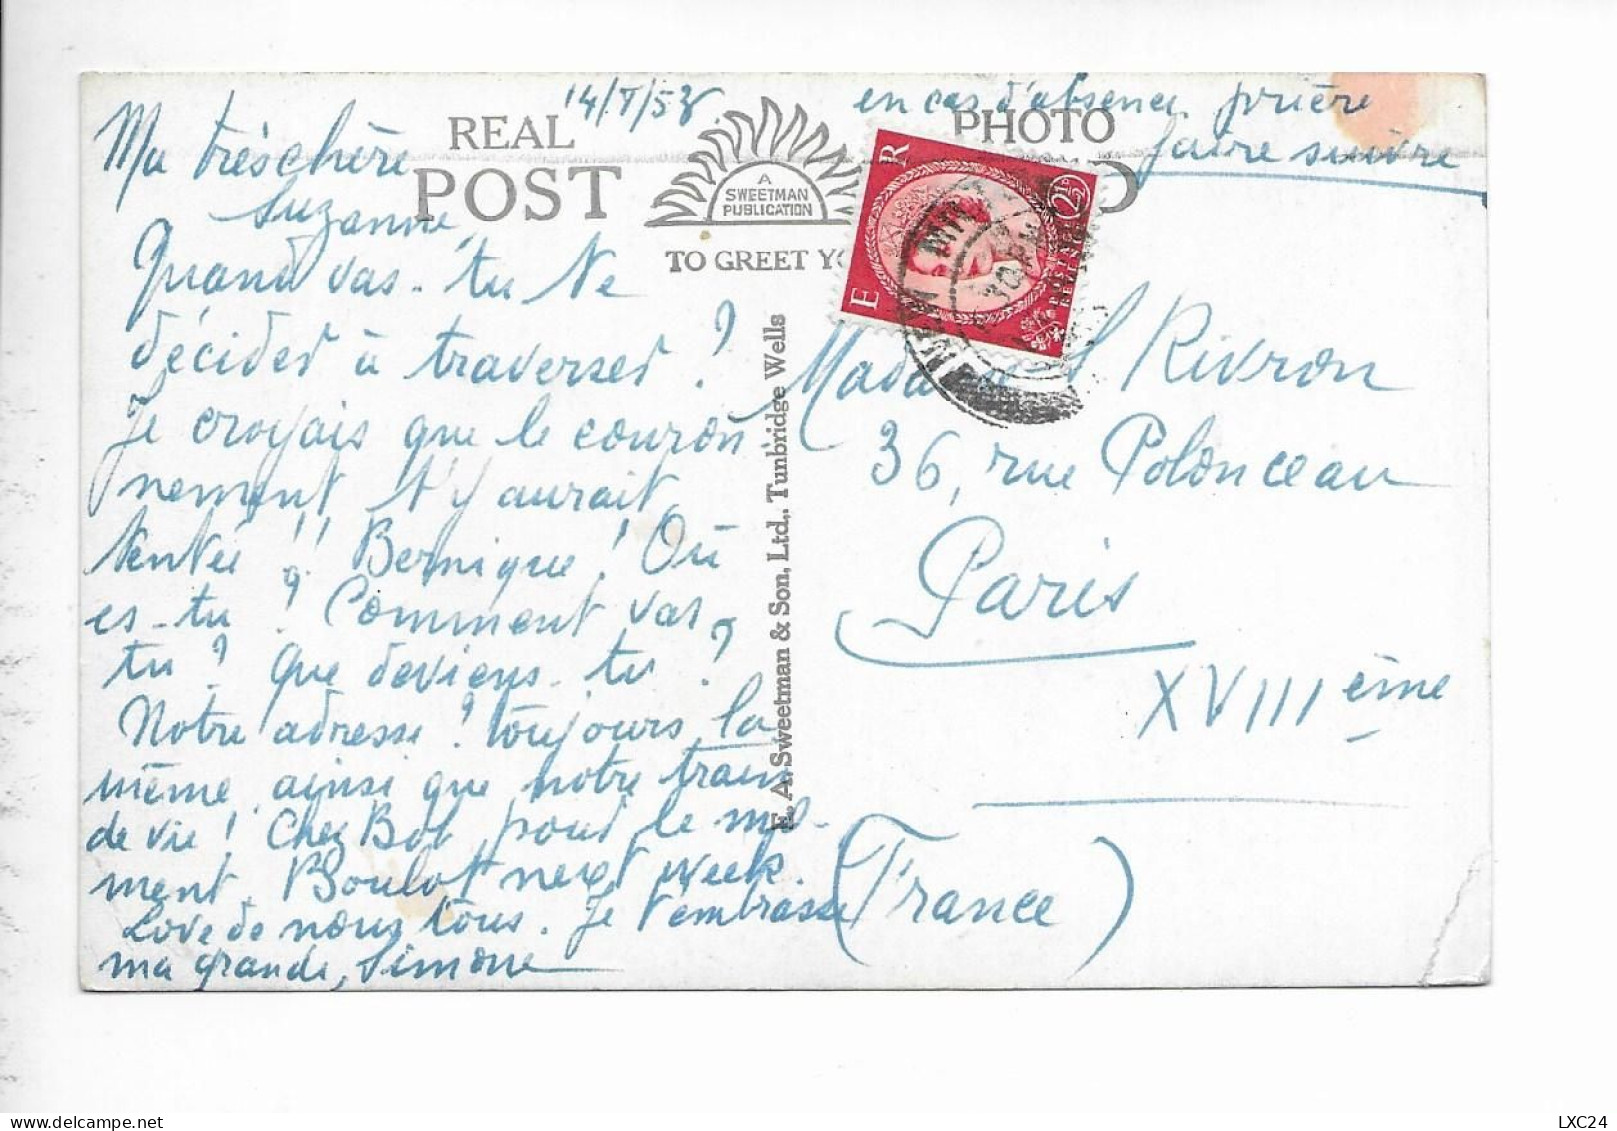 14/7/53.
en cas d'absence prière
faire suivre
REAL PHOTO
POST
A
SWEETMAN
PUBLICATION
TO GREET YO
E R
2½
POSTAGE
REVENUE
E. A. Sweetman & Son, Ltd., Tunbridge Wells
Ma très chère
Suzanne,
Quand vas-tu te
décider à traverser ?
Je croyais que le couron
nement t'y aurait
tentée !! Bernique ! Où
es-tu ? Comment vas
tu ? Que deviens-tu ?
Notre adresse ? toujours la
même, ainsi que notre train
de vie ! Chez Bob pour le mo-
ment. Boulot next week.
Love de nous tous. Je t'embrasse
ma grande, Simone
Madame S Rivron
36, rue Polonceau
Paris
XVIIIème
(France)
LXC24